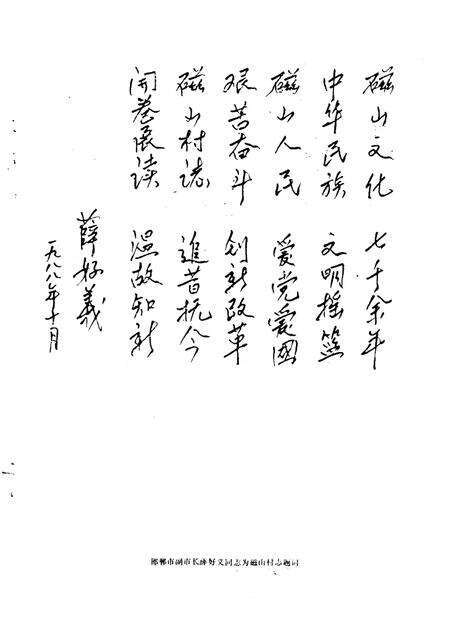 磁山文化 七千余年
中华民族 文明摇篮
磁山人民 爱党爱國
艰苦奋斗 创新改革
磁山村志 追昔抚今
开卷展读 温故知新
薛好義
一九八八年十月
邯郸市副市长薛好义同志为磁山村志题词